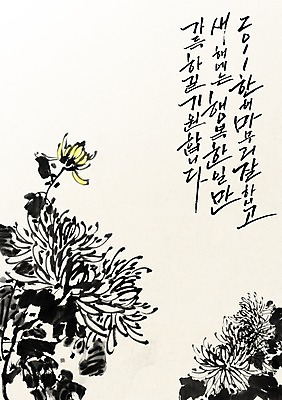 2011한해 마무리 잘하고
새해에는 행복한 일만
가득하길 기원합니다